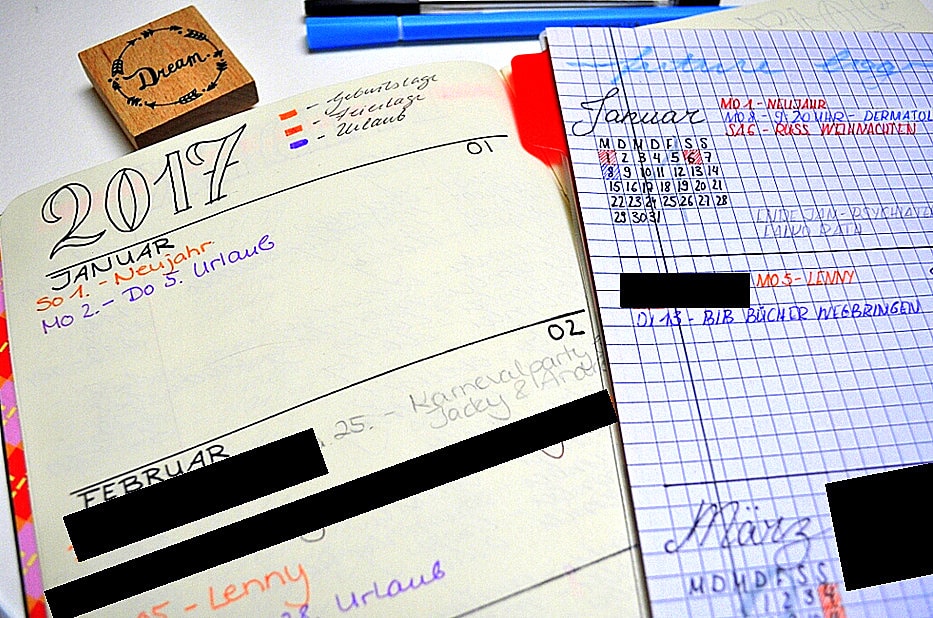 Dream.
- Geburtstage
- Feiertage
- Urlaub
2017
01
JANUAR
So 1. - Neujahr
Mo 2. - Do 5. Urlaub
02
25. - Karnevalparty
Jacky &
FEBRUAR
05 - Lenny
28. Urlaub
future log
Januar
MO 1 - NEUJAHR
MO 8 - 9:20 UHR - DERMATOL
SA 6 - RUSS. WEIHNACHTEN
M D M D F S S
1 2 3 4 5 6 7
8 9 10 11 12 13 14
15 16 17 18 19 20 21
22 23 24 25 26 27 28
29 30 31
ENDE JAN - PSYCHIAT
MO 5 - LENNY
DI 13 - BIB BÜCHER WEGBRINGEN
März
M D M D F S S
1 2 3 4